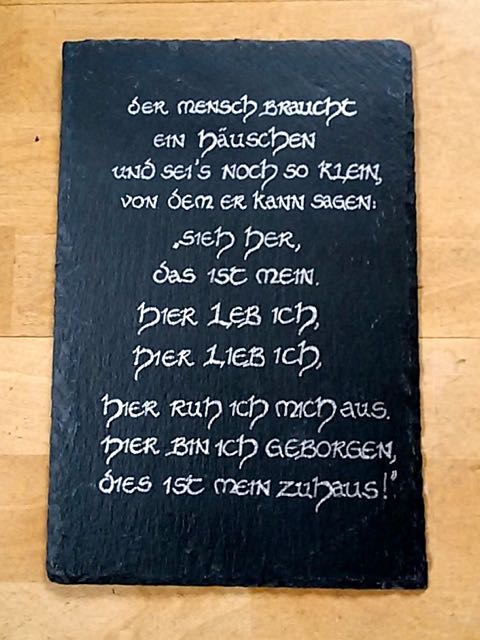 der mensch braucht
ein häuschen
und sei's noch so klein,
von dem er kann sagen:
„sieh her,
das ist mein.
hier leb ich,
hier lieb ich,
hier ruh ich mich aus.
hier bin ich geborgen,
dies ist mein zuhaus!"